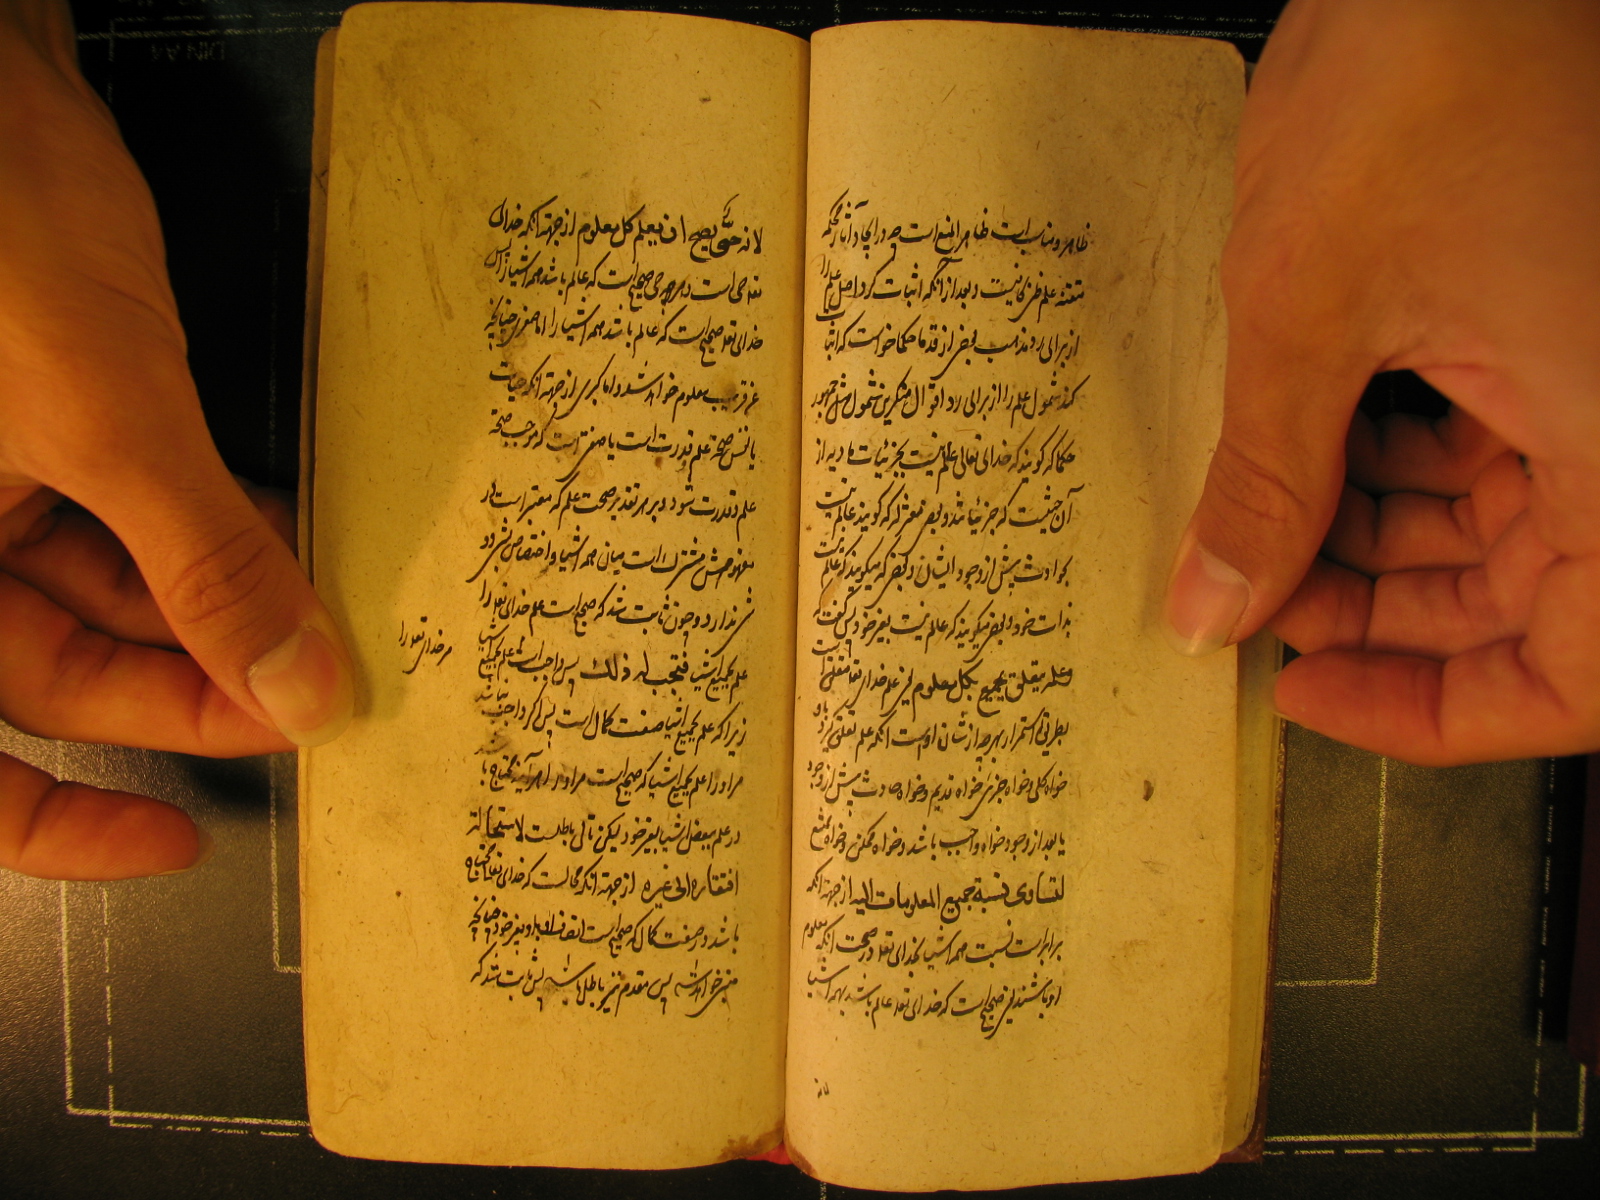 ظاهر و مناسب است ظاهر المنع است چه در ایجاد آثار محکمه
متقنه علم ظنی کافی نیست و بعد از آنکه اثبات کرد اصل علم را
از برای رد مذهب بعضی از قدما حکما خواست که اثبات
کند شمول علم را از برای رد اقوال منکرین شمول مثل جمهور
حکما که گویند که خدای تعالی عالم نیست بجزئیات مادیه از
آن حیثیت که جزئیاند و بعضی معتزله که گویند عالم نیست
بحوادث پیش از وجود ایشان و بعضی که میگویند که عالم نیست
بذات خود و بعضی میگویند که عالم نیست بغیر خود پس گفت که
وعلمه یتعلق بجمیع بکل معلوم یعنی علم خدای تعا متعلق است
بطریق استمرار بهر چه از شان اوست آنکه علم تعلق گیرد باو
خواه کلی و خواه جزئی خواه قدیم و خواه حادث پیش از وجود
یا بعد از وجود خواه واجب باشد و خواه ممکن و خواه ممتنع
لتساوی نسبة جمیع المعلومات الیه از جهة آنکه
برابر است نسبت همه اشیا بخدای تعا در صحت آنکه معلوم
او باشند یعنی صحیح است که خدای تعا عالم باشد بهمه اشیا
لانه حی یصح ان یعلم کل معلوم از جهة آنکه خدای
تعا حی است و هر چه حی صحیح است که عالم باشد همه اشیا را پس
خدای تعا صحیح است که عالم باشد همه اشیا را اما صغری چنانچه
عن قریب معلوم خواهد شد و اما کبری از جهة آنکه حیات
یا نفس صحة علم و قدرت است یا صفتی است که موجب صحة
علم و قدرت شود و بر هر تقدیر صحت علم که معتبر است در
مفهومش مشترک است میان همه اشیا و اختصاص بفردی
ندارد و چون ثابت شد که صحیح است علم خدای تعا را
علم بجمیع اشیا فتجب له ذلک پس واجب است علم بجمیع اشیا
مر خدای تعا را
زیرا که علم بجمیع اشیا صفت کمال است پس اگر واجب نباشد
مر او را علم بجمیع اشیا که صحیح است مر او را هر آینه محتاج باشد
در علم ببعض اشیا بغیر خود لیکن تالی باطلست لاستحالة
افتقاره الی غیره از جهة آنکه محالست که خدای تعا محتاج
باشد در صفت کمال که صحیح است اتصاف او باو بغیر خود چنانچه
مبین خواهد شد پس مقدم نیز باطل باشد پس ثابت شد که